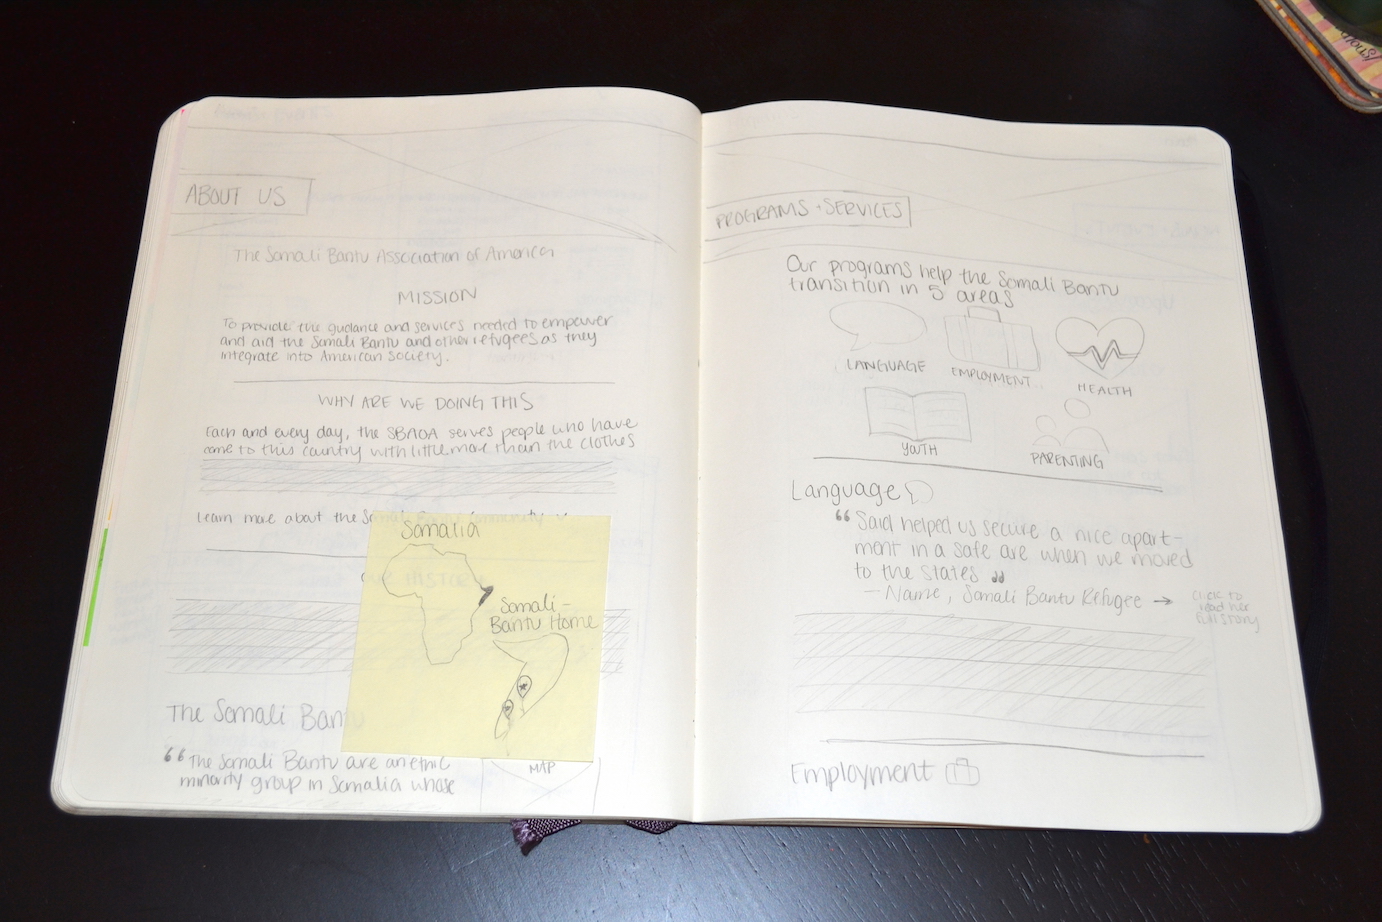 ABOUT US
The Somali Bantu Association of America
MISSION
To provide the guidance and services needed to empower
and aid the Somali Bantu and other refugees as they
integrate into American Society.
WHY ARE WE DOING THIS
Each and every day, the SBAOA serves people who have
come to this country with little more than the clothes
Learn more about the
HISTORY
Somalia
Somali-
Bantu Home
The Somali Bantu
“ The Somali Bantu are an ethnic
minority group in Somalia whose
MAP
PROGRAMS + SERVICES
Our programs help the Somali Bantu
transition in 5 areas
LANGUAGE
EMPLOYMENT
HEALTH
YOUTH
PARENTING
Language
“ Said helped us secure a nice apart-
ment in a safe are when we moved
to the states ”
— Name, Somali Bantu Refugee →
click to
read her
full story
Employment